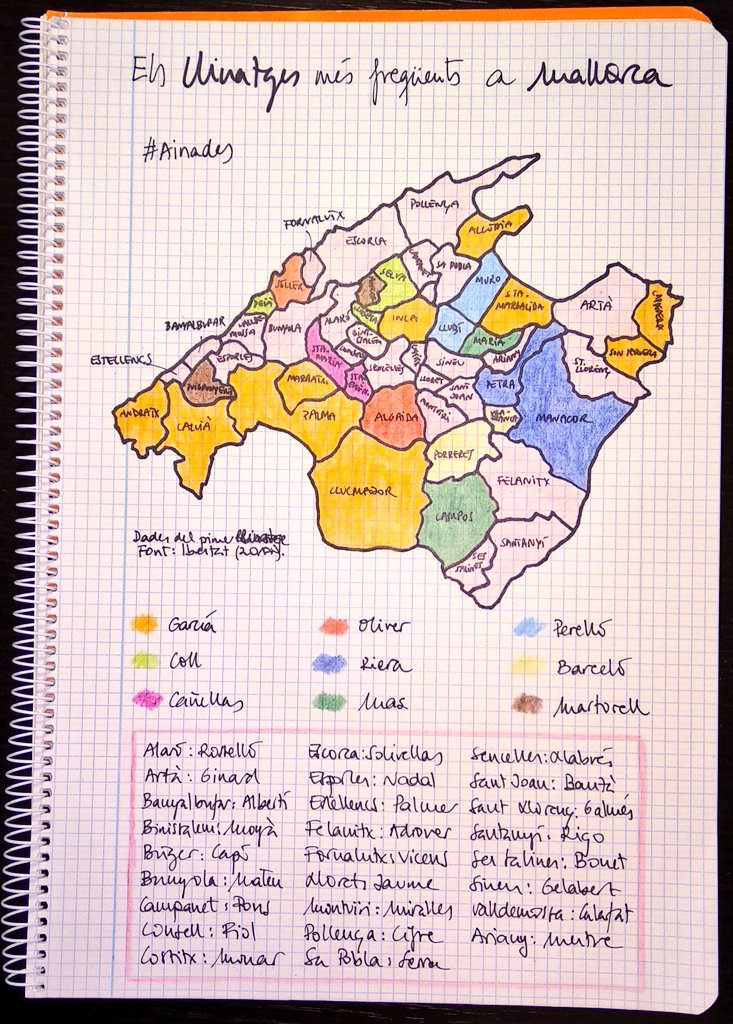 Els llinatges més freqüents a Mallorca
#Ainades
POLLENÇA
FORNALUTX
ALCÚDIA
ESCORCA
CAMPANET
SA POBLA
SÓLLER
SELVA
MURO
STA. MARGALIDA
ARTÀ
CAPDEPERA
DEIÀ
LLOSETA
INCA
LLUBÍ
MARIA
SON SERVERA
BANYALBUFAR
VALLDEMOSSA
BUNYOLA
ALARÓ
BINISSALEM
ARIANY
ST. LLORENÇ
ESTELLENCS
ESPORLES
STA. MARIA
CONSELL
SENCELLES
SINEU
PETRA
PUIGPUNYENT
MARRATXÍ
STA. EUGÈNIA
LLORET
SANT JOAN
MANACOR
ANDRATX
CALVIÀ
PALMA
ALGAIDA
MONTUÏRI
VILAFRANCA
PORRERES
LLUCMAJOR
FELANITX
CAMPOS
SANTANYÍ
SES SALINES
Dades del primer llinatge
Font: Ibestat (2017).
García Oliver Perelló
Coll Riera Barceló
Cañellas Mas Martorell
Alaró: Rosselló Escorca: Solivellas Sencelles: Llabrés
Artà: Ginard Esporles: Nadal Sant Joan: Bauzà
Banyalbufar: Albertí Estellencs: Palmer Sant Llorenç: Galmés
Binissalem: Moyà Felanitx: Adrover Santanyí: Rigo
Búger: Capó Fornalutx: Vicens Ses Salines: Bonet
Bunyola: Mateu Lloret: Jaume Sineu: Gelabert
Campanet: Pons Montuïri: Miralles Valldemossa: Calafat
Consell: Fiol Pollença: Cifre Ariany: Mestre
Costitx: Munar Sa Pobla: Serra